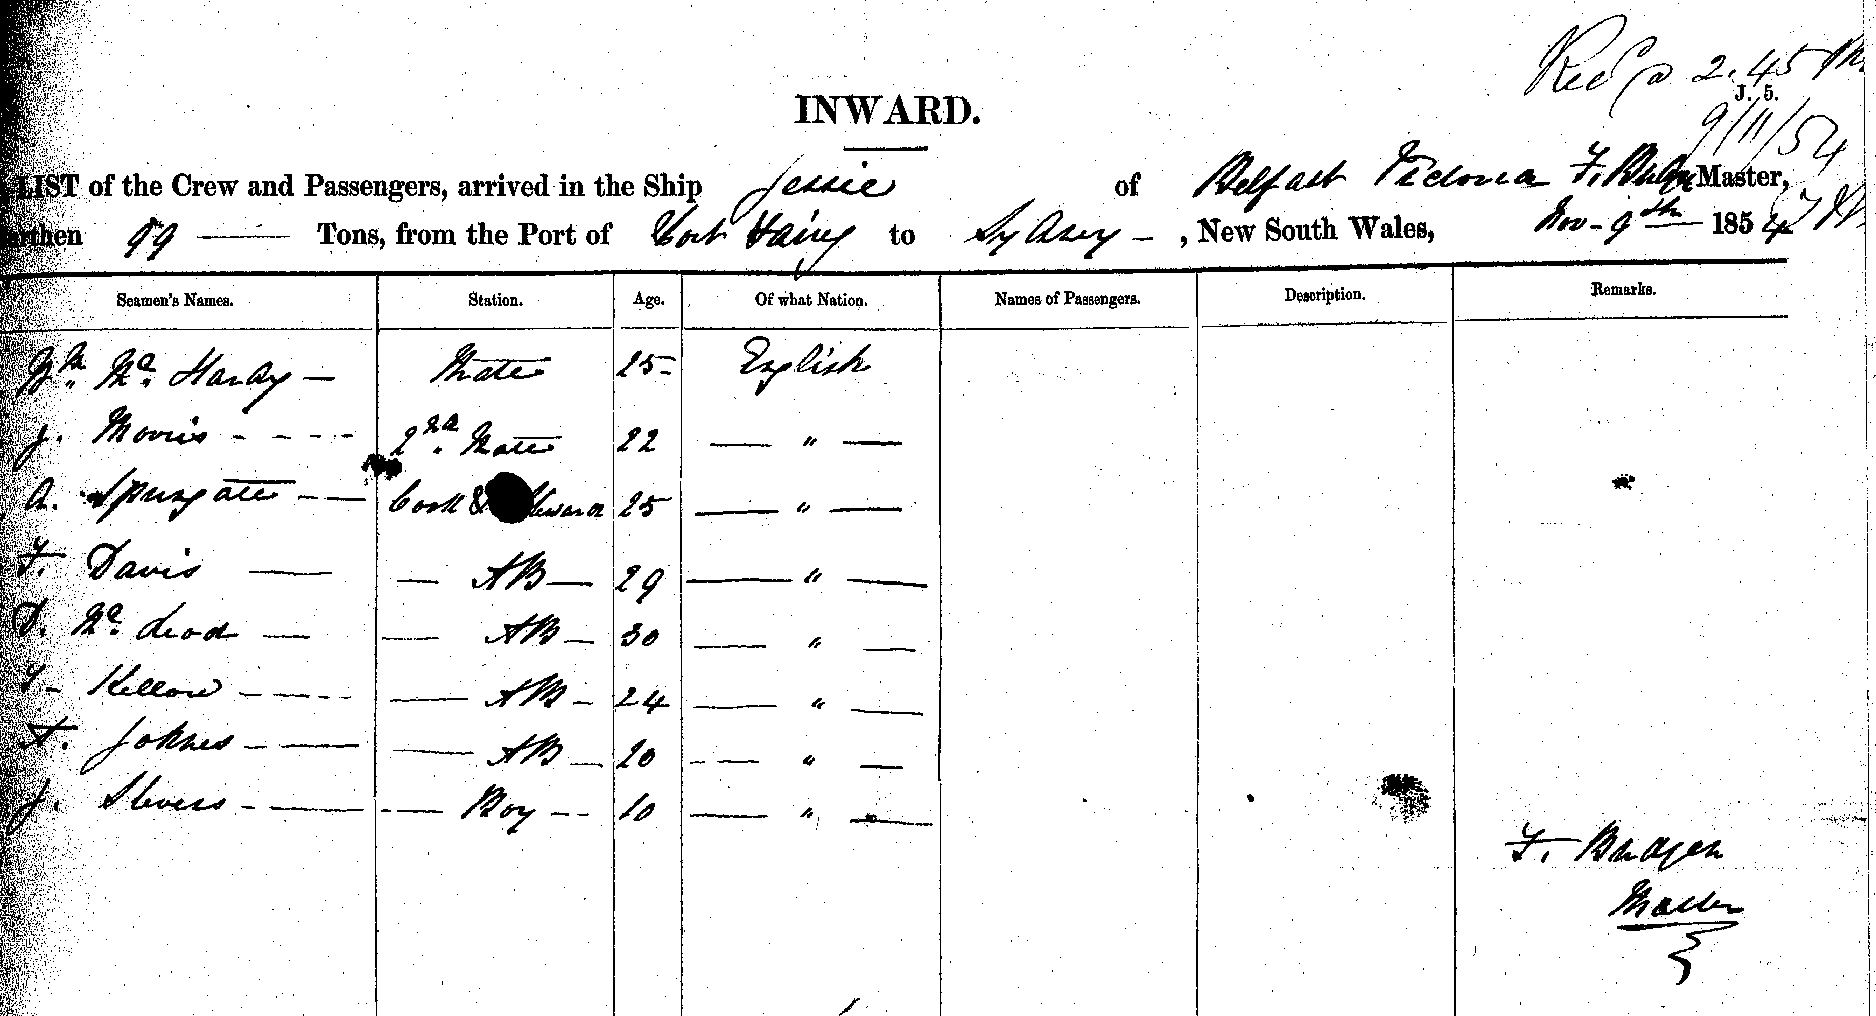 Recd 2.45 PM
J. 5.
9/11/54
INWARD.
LIST of the Crew and Passengers, arrived in the Ship Jessie of Belfast Victoria F. Master,
99 Tons, from the Port of Port Fairy to Sydney - , New South Wales, Nov- 9th 1854
Seamen's Names. Station. Age. Of what Nation. Names of Passengers. Description. Remarks.
Wm. Mc. Hardy Mate 25 English
J. Morris 2nd. Mate 22 "
A. Spurgate Cook & Steward 25 "
F. Davis AB 29 "
D. Mc. Leod AB 30 "
T- Kellow AB 24 "
A. Johnes AB 20 "
J. Stevens Boy 10 "
F. Bridgen
Master